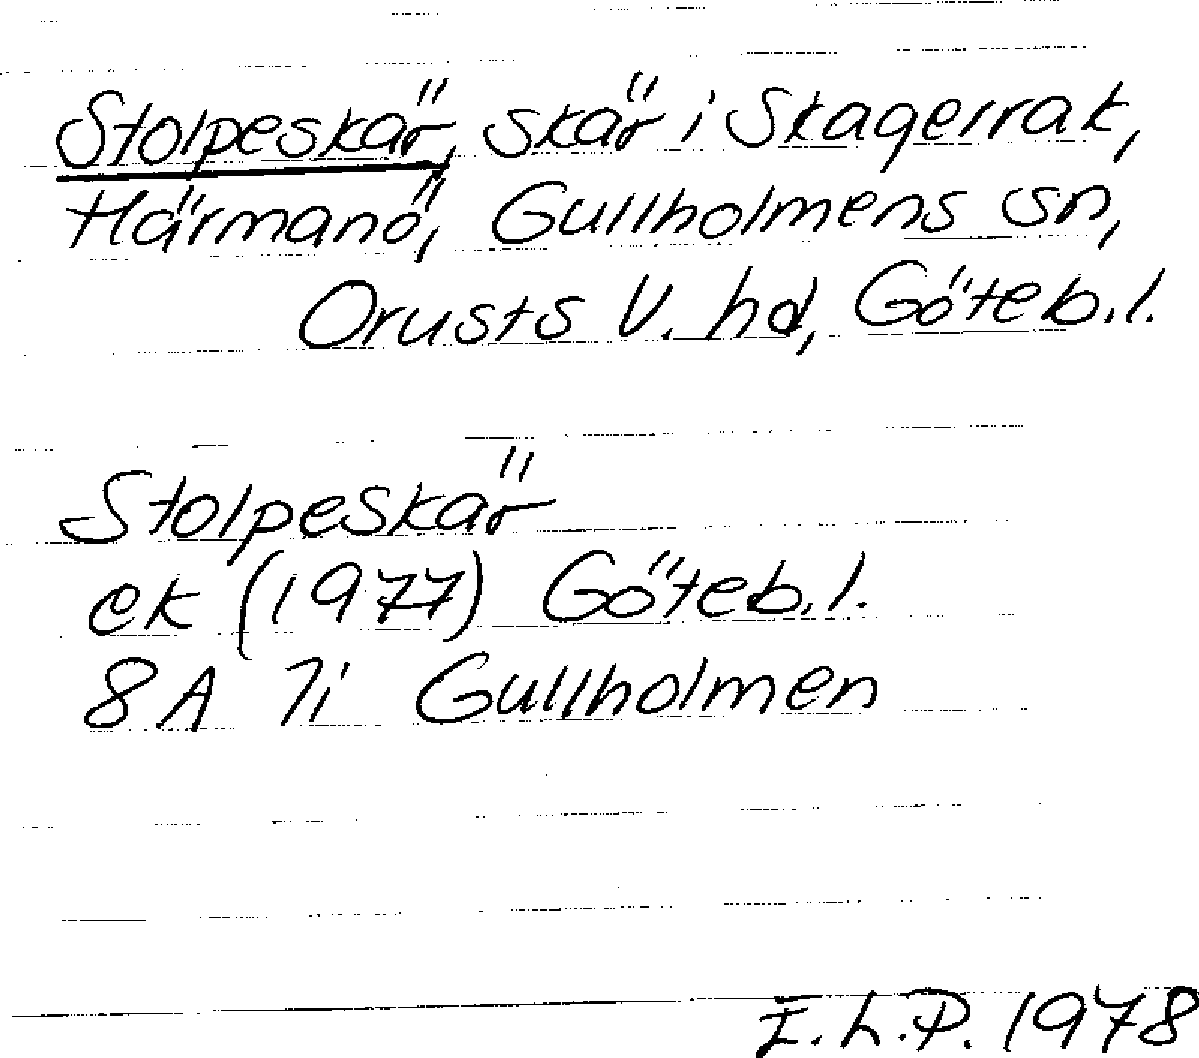 Stolpeskär, skär i Skagerrak,
Härmanö, Gullholmens sn,
Orusts V. hd, Göteb.l.
Stolpeskär
ek (1977) Göteb.l.
8A 7i Gullholmen
I.L.P. 1978